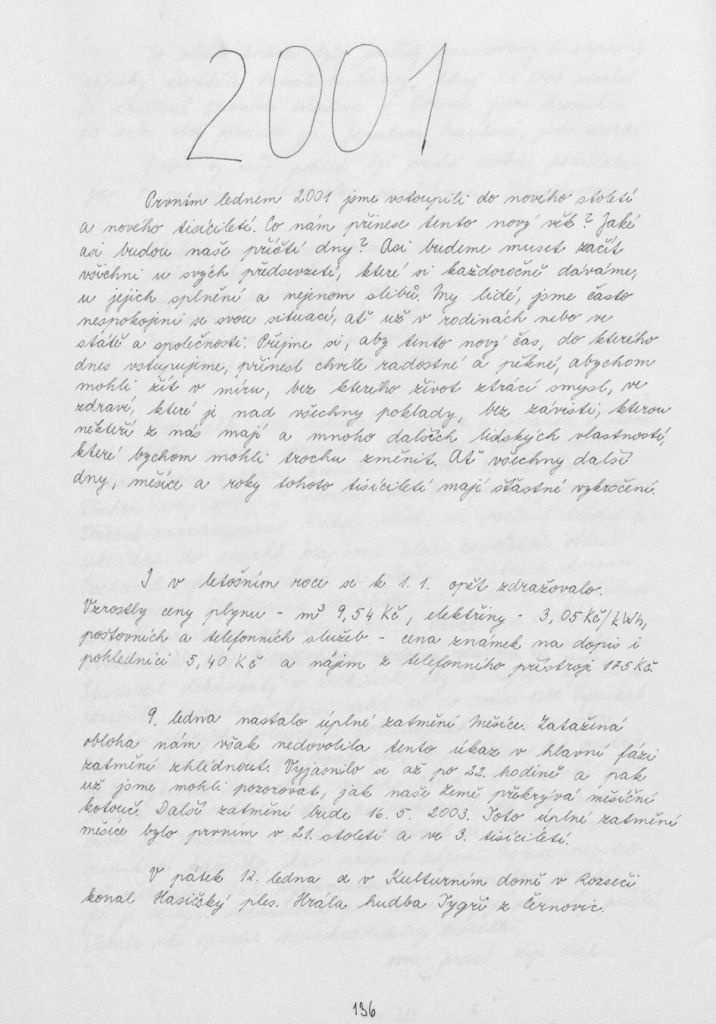 2001
Prvním lednem 2001 jsme vstoupili do nového století
a nového tisíciletí. Co nám přinese tento nový věk? Jaké
asi budou naše příští dny? Asi budeme muset začít
všichni u svých předsevzetí, které si každoročně dáváme,
u jejich splnění a nejenom slibů. My lidé, jsme často
nespokojeni se svou situací, ať už v rodinách nebo ve
státě a společnosti. Přejme si, aby tento nový čas, do kterého
dnes vstupujeme, přinesl chvíle radostné a pěkné, abychom
mohli žít v míru, bez kterého život ztrácí smysl, ve
zdraví, které je nad všechny poklady, bez závisti, kterou
někteří z nás mají a mnoho dalších lidských vlastností,
které bychom mohli trochu změnit. Ať všechny další
dny, měsíce a roky tohoto tisíciletí mají šťastné vykročení.
I v letošním roce se k 1. 1. opět zdražovalo.
Vzrostly ceny plynu - m³ 9,54 Kč, elektřiny - 3,05 Kč/kWh,
poštovních a telefonních služeb - cena známek na dopis i
pohlednici 5,40 Kč a nájem z telefonního přístroje 175 Kč.
9. ledna nastalo úplné zatmění Měsíce. Zatažená
obloha nám však nedovolila tento úkaz v hlavní fázi
zatmění zhlédnout. Vyjasnilo se až po 22. hodině a pak
už jsme mohli pozorovat, jak naše Země překrývá měsíční
kotouč. Další zatmění bude 16. 5. 2003. Toto úplné zatmění
měsíce bylo prvním v 21. století a ve 3. tisíciletí.
V pátek 12. ledna se v Kulturním domě v Rozseči
konal Hasičský ples. Hrála hudba Tygři z Černovic.
136